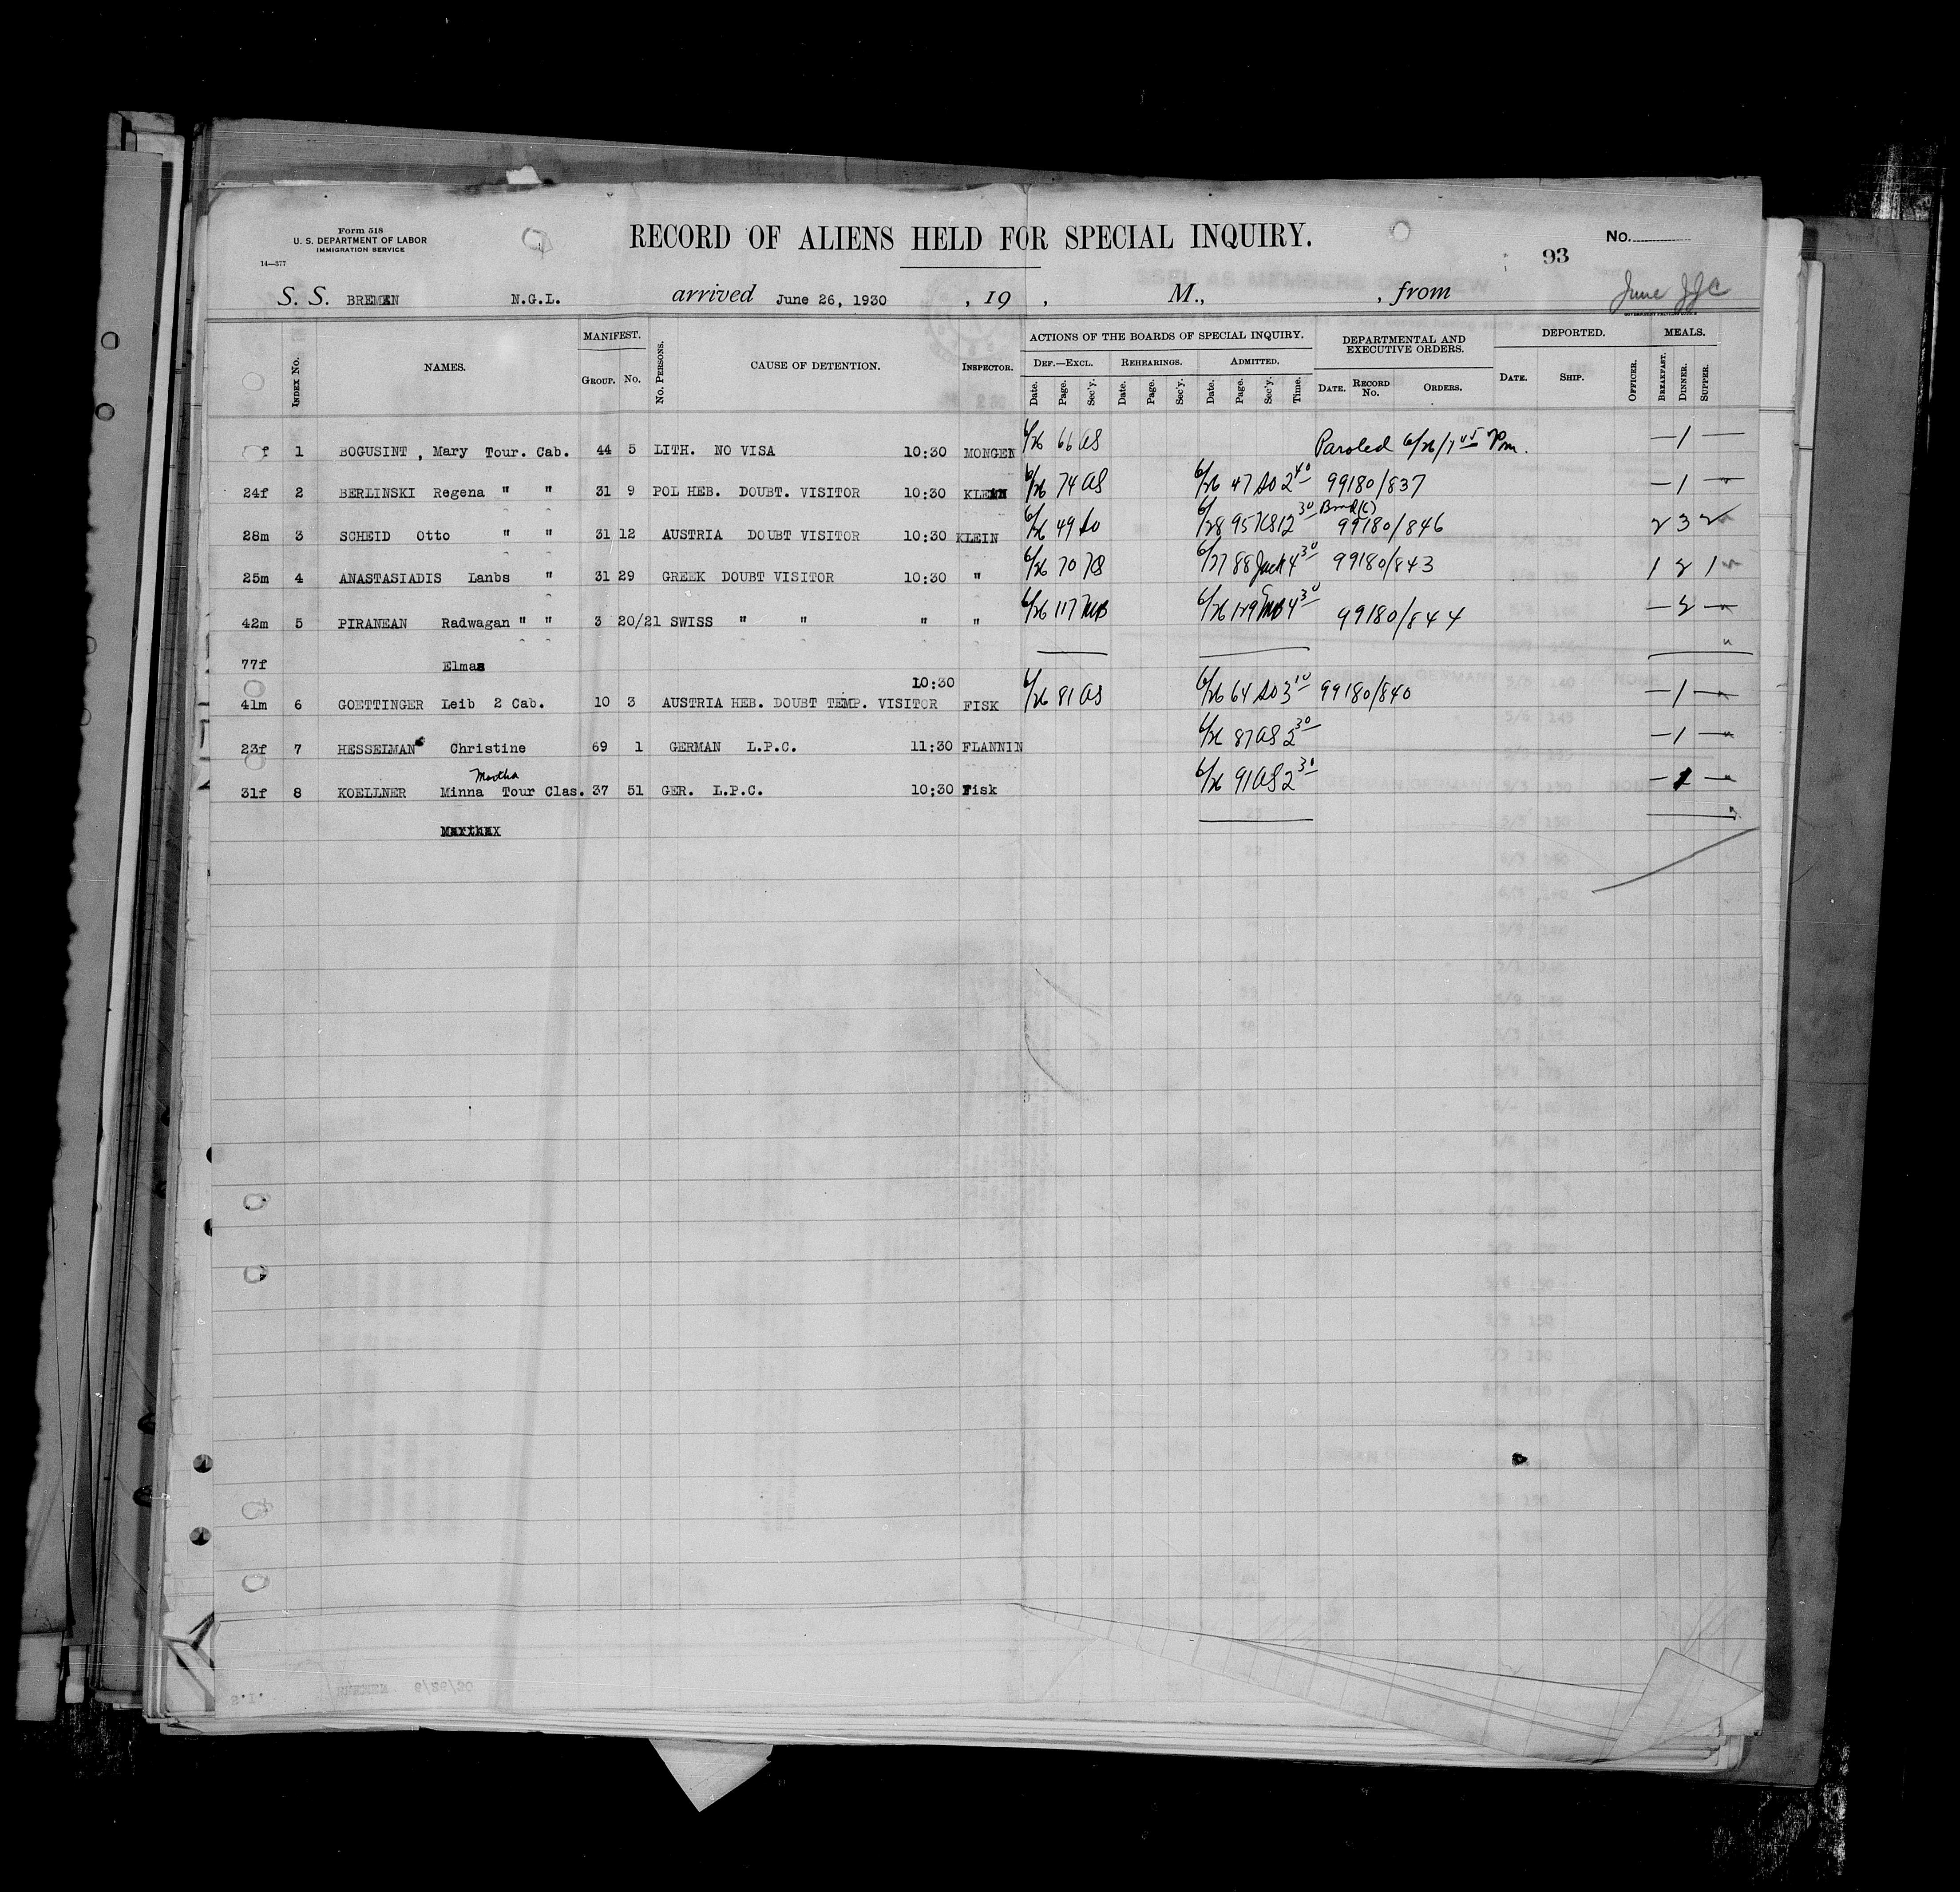 Form 518
U. S. DEPARTMENT OF LABOR
IMMIGRATION SERVICE
14—377
RECORD OF ALIENS HELD FOR SPECIAL INQUIRY.
93
No.
S. S. BREMEN N.G.L. arrived June 26, 1930 , 19 , M., , from
June JJC
INDEX No. NAMES. MANIFEST. GROUP. NO. NO. PERSONS. CAUSE OF DETENTION. INSPECTOR. ACTIONS OF THE BOARDS OF SPECIAL INQUIRY. DEPARTMENTAL AND EXECUTIVE ORDERS. DEPORTED. MEALS.
DEF.—EXCL. REHEARINGS. ADMITTED.
Date. Page. Sec'y. Date. Page. Sec'y. Date. Page. Sec'y. Time. DATE. RECORD No. ORDERS. DATE. SHIP. OFFICER. BREAKFAST. DINNER. SUPPER.
f 1 BOGUSINT , Mary Tour. Cab. 44 5 LITH. NO VISA 10:30 MONGEN 6/26 66 AS Paroled 6/26/ Pm. — 1 —
24f 2 BERLINSKI Regena " " 31 9 POL HEB. DOUBT. VISITOR 10:30 KLEIN 6/26 74 AS 6/26 47 SO 2 40 99180/837 — 1 —
28m 3 SCHEID Otto " " 31 12 AUSTRIA DOUBT VISITOR 10:30 KLEIN 6/26 49 SO 6/28 95 KS 12 30 Bond (C) 99180/846 2 3 2
25m 4 ANASTASIADIS Lanbs " 31 29 GREEK DOUBT VISITOR 10:30 " 6/26 70 KS 6/27 88 Jack 4 30 99180/843 1 2 1
42m 5 PIRANEAN Radwagan " " 3 20/21 SWISS " " " " 6/26 117 MB 6/26 129 MB 4 30 99180/844 — 2 —
77f Elmas
41m 6 GOETTINGER Leib 2 Cab. 10 3 AUSTRIA HEB. DOUBT TEMP. VISITOR 10:30 FISK 6/26 81 AS 6/26 64 SO 3 10 99180/840 — 1 —
23f 7 HESSELMAN Christine 69 1 GERMAN L.P.C. 11:30 FLANNIN 6/26 87 AS 2 30 — 1 —
Martha
31f 8 KOELLNER Minna Tour Clas. 37 51 GER. L.P.C. 10:30 Fisk 6/26 91 AS 2 30 — 1 —
S.I. BREMEN 6/26/30